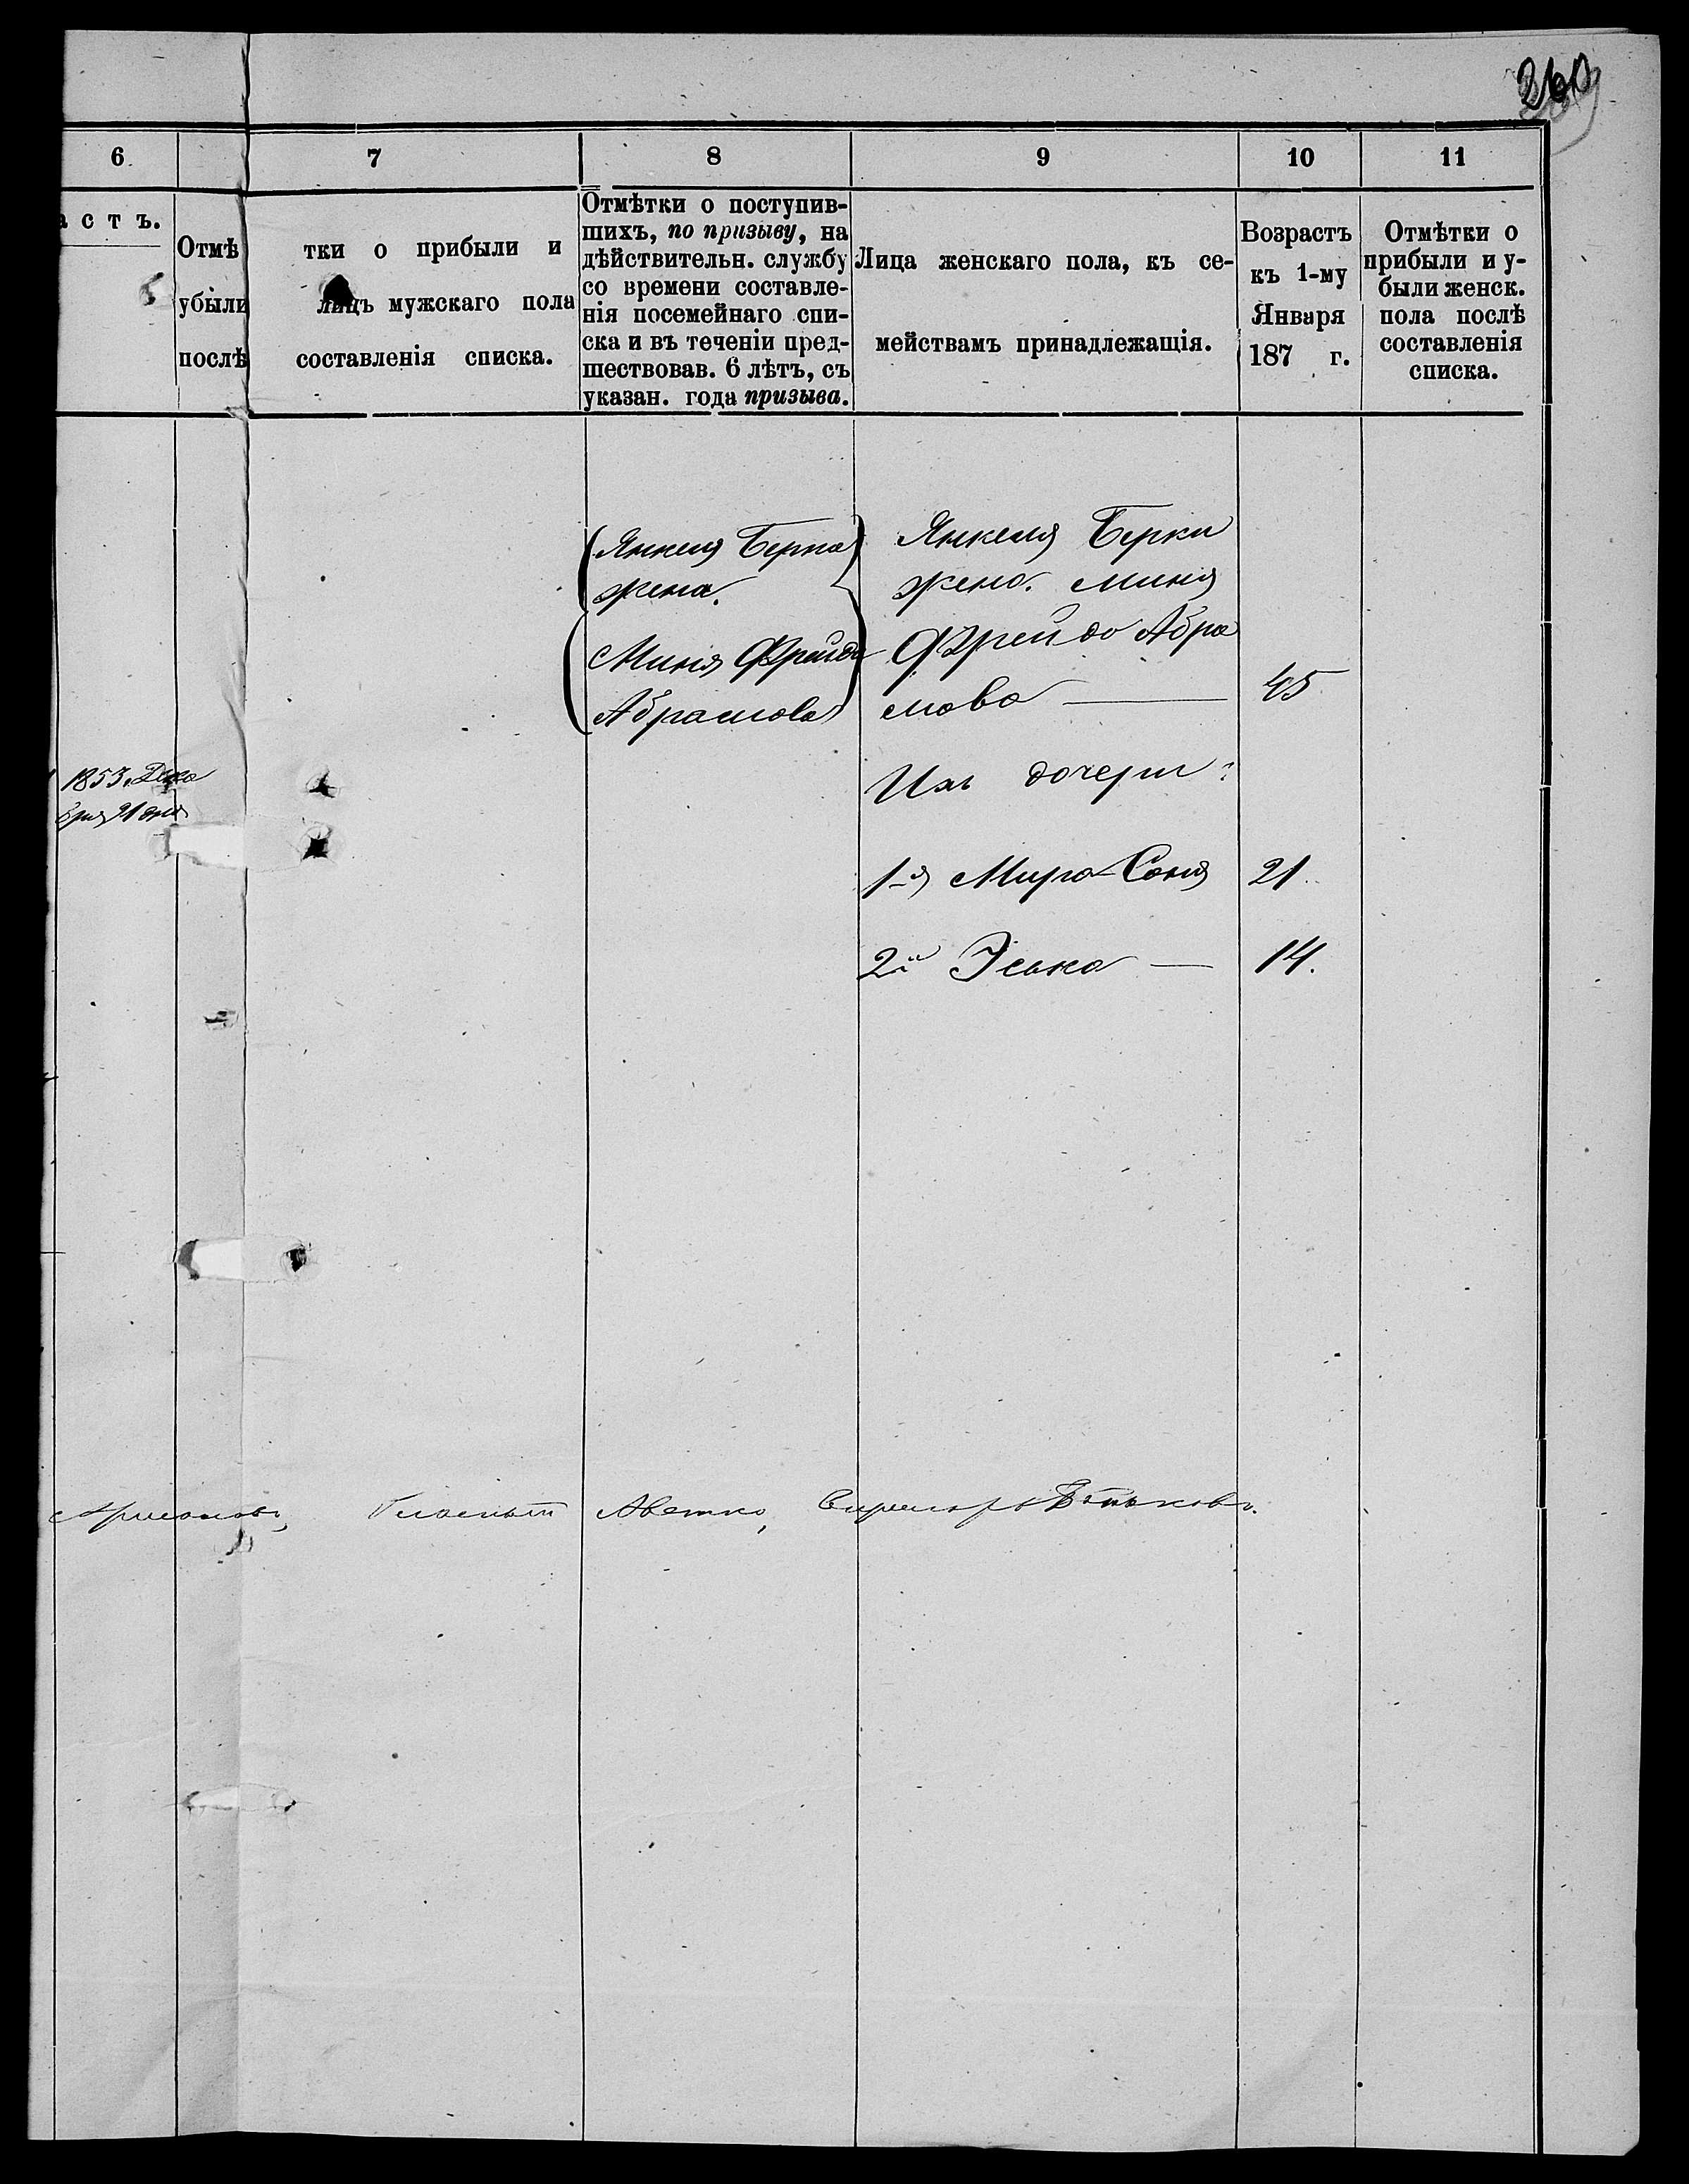 260
6 7 8 9 10 11
астъ.
Отмѣтки о прибыли и
убыли лицъ мужскаго пола
послѣ составленія списка.
Отмѣтки о поступив-
шихъ, по призыву, на
дѣйствительн. службу
со времени составле-
нія посемейнаго спи-
ска и въ теченіи пред-
шествовав. 6 лѣтъ, съ
указан. года призыва.
Лица женскаго пола, къ се-
мействамъ принадлежащія.
Возрастъ
къ 1-му
Января
187 г.
Отмѣтки о
прибыли и у-
были женск.
пола послѣ
составленія
списка.
1853. Дека
бря 21 дня
Янкеля Берка
жена.
Миня Фрейда
Абрамова
Янкеля Берки
жена. Миня
Фрейда Абра
мова — 45
Ихъ дочери:
1-я Мира-Соня 21
2я Эська — 14.
Гласный